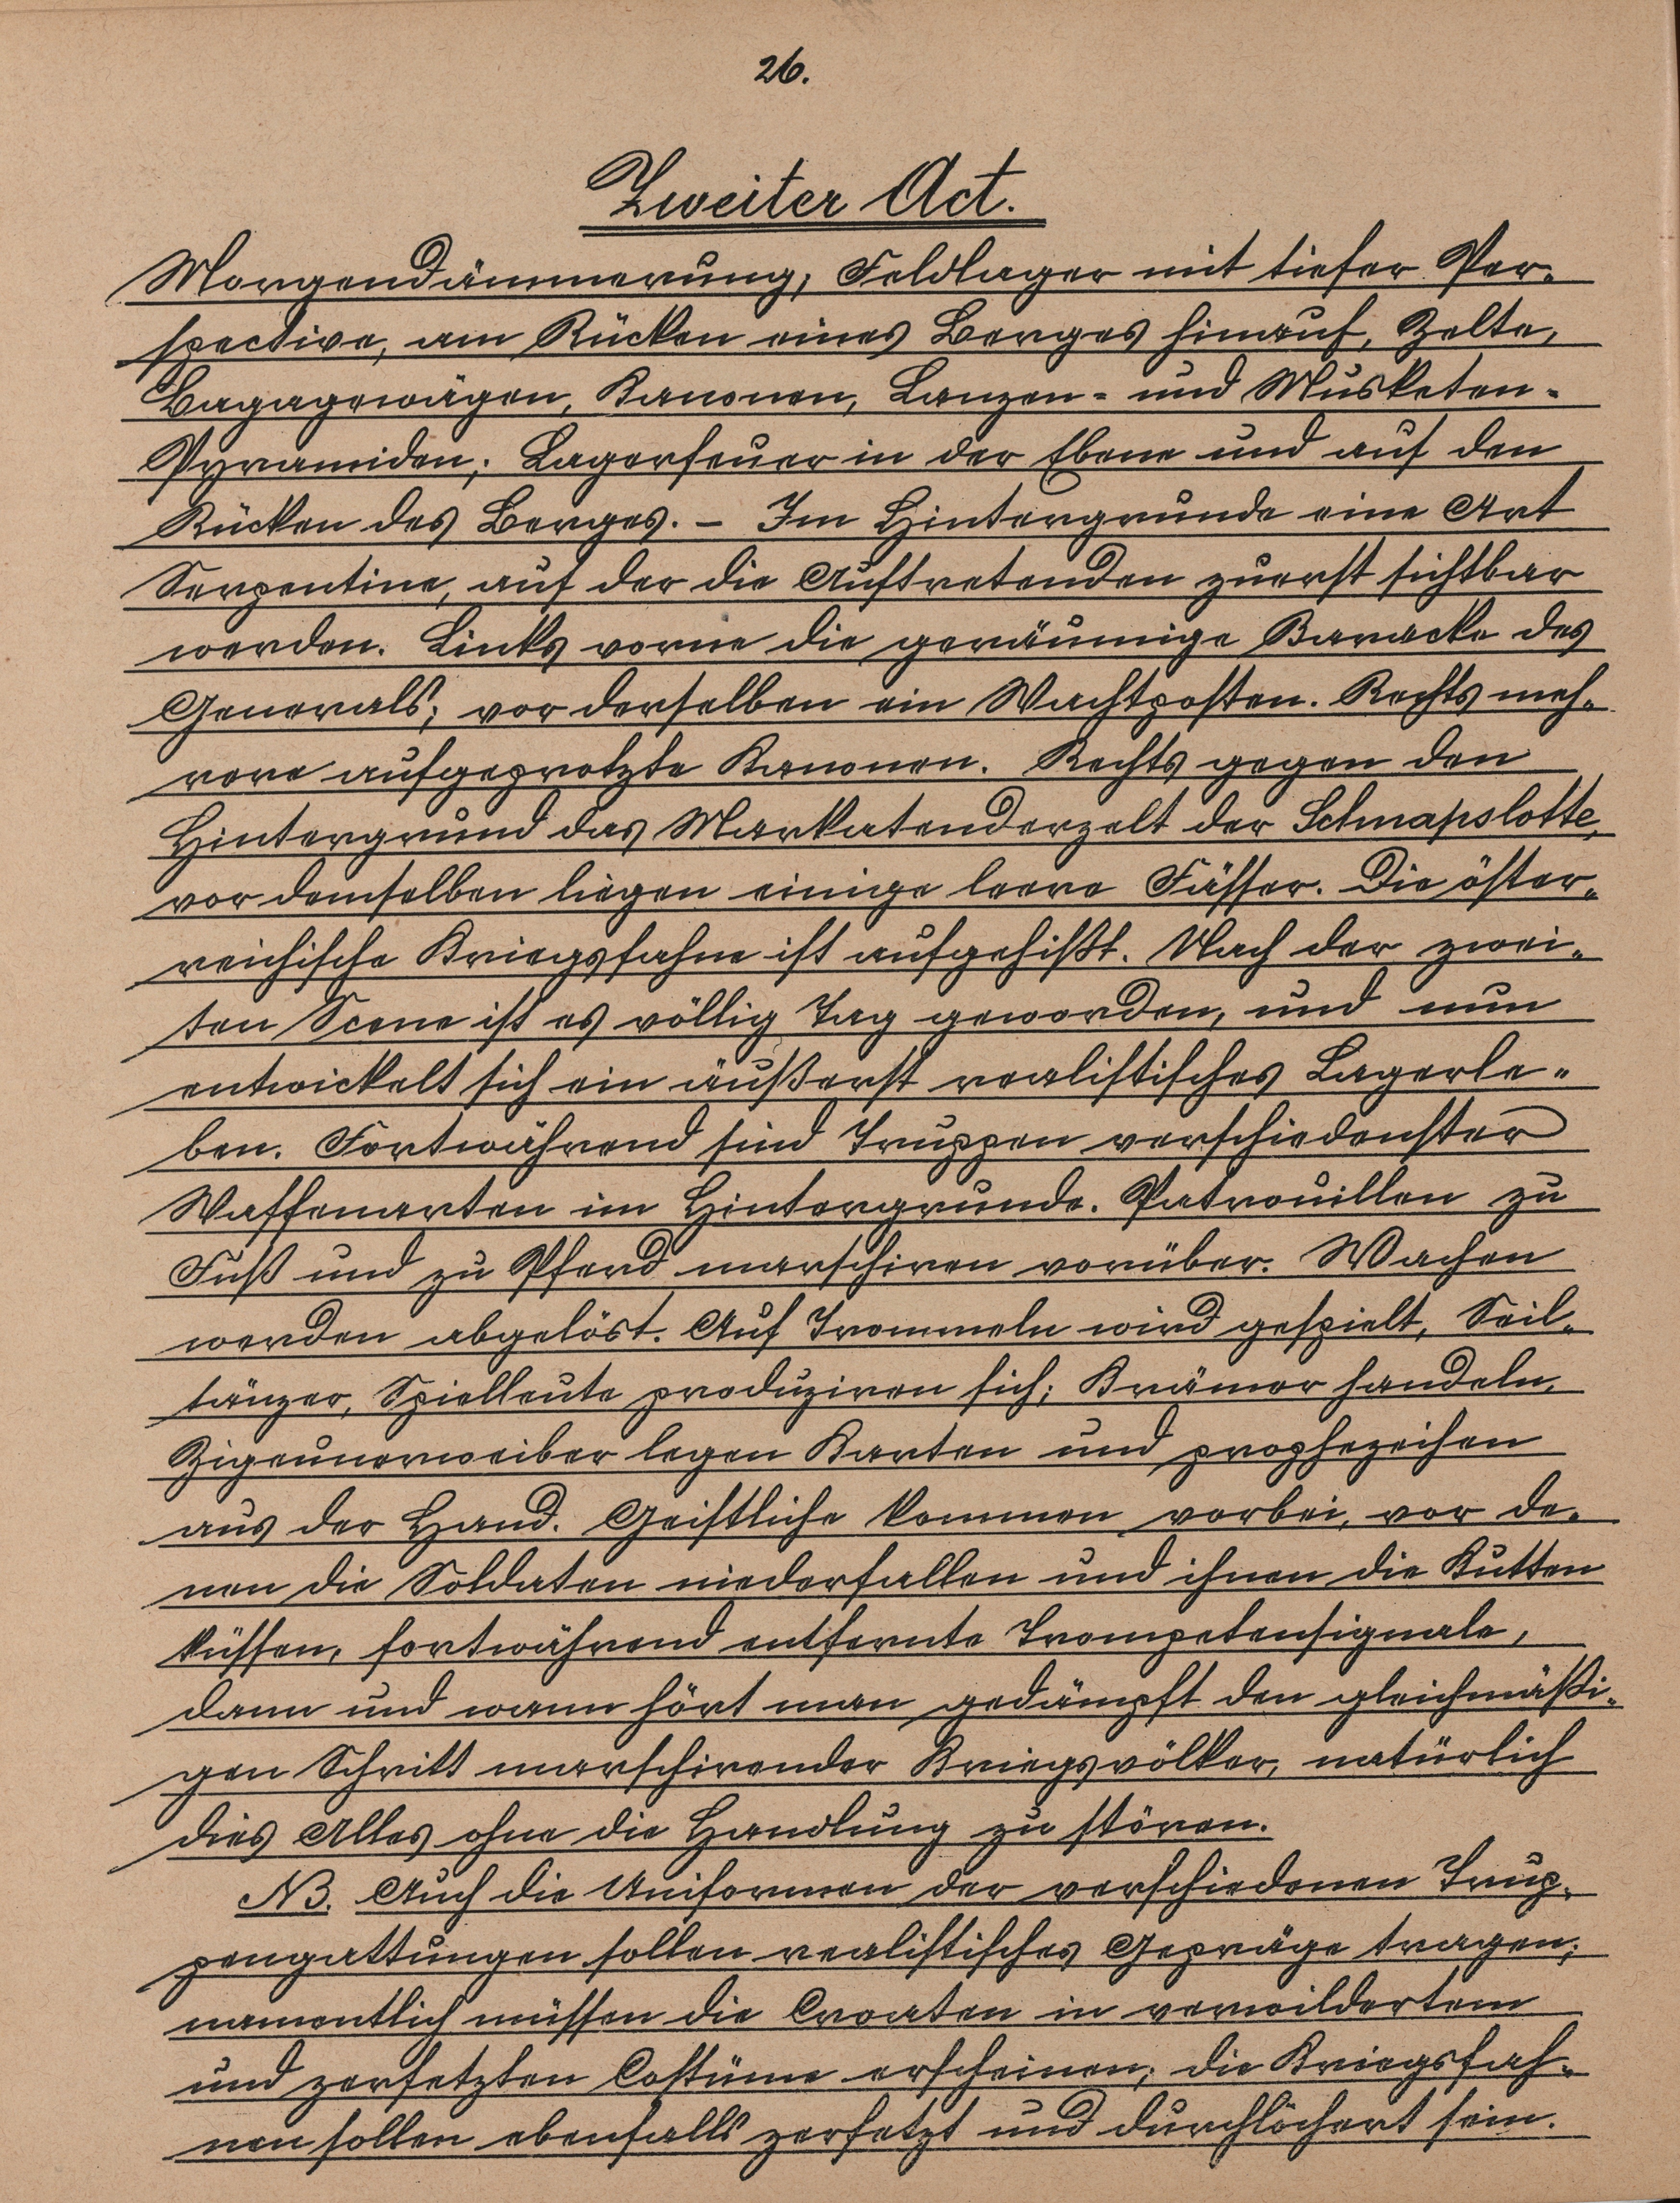 26.
Zweiter Act.
Morgendämmerung, Feldlager mit tiefer Per-
spective, am Rücken eines Berges hinauf, Zelte,
Bagagewägen, Kanonen, Lanzen- und Musketen-
Pyramiden; Lagerfeuer in der Ebene und auf den
Rücken des Berges. – Im Hintergrunde eine Art
Serpentine, auf der die Auftretenden zuerst sichtbar
werden. Links vorne die geräumige Baracke des
Generals; vor derselben ein Wachtposten. Rechts meh-
rere aufgeprotzte Kanonen. Rechts gegen den
Hintergrund das Marketenderzelt der Schnapslotte,
vor demselben liegen einige leere Fässer. Die öster-
reichische Kriegsfahne ist aufgehißt. Nach der zwei-
ten Scene ist es völlig Tag geworden, und nun
entwickelt sich ein äußerst realistisches Lagerle-
ben. Fortwährend sind Truppen verschiedenster
Waffenarten im Hintergrunde. Patrouillen zu
Fuß und zu Pferd marschiren vorüber. Wachen
werden abgelöst. Auf Trommeln wird gespielt, Seil-
tänzer, Spielleute produziren sich; Krämer handeln,
Zigeunerweiber legen Karten und prophezeihen
aus der Hand. Geistliche kommen vorbei, vor de-
nen die Soldaten niederfallen und ihnen die Kutten
küssen, fortwährend entfernte Trompetensignale,
dann und wann hört man gedämpft den gleichmäßi-
gen Schritt marschirender Kriegsvölker, natürlich
dies Alles ohne die Handlung zu stören.
NB. Auch die Uniformen der verschiedenen Trup-
pengattungen sollen realistisches Gepräge tragen;
namentlich müssen die Croaten in verwildertem
und zerfetzten Costüme erscheinen; die Kriegsfah-
nen sollen ebenfalls zerfetzt und durchlöchert sein.